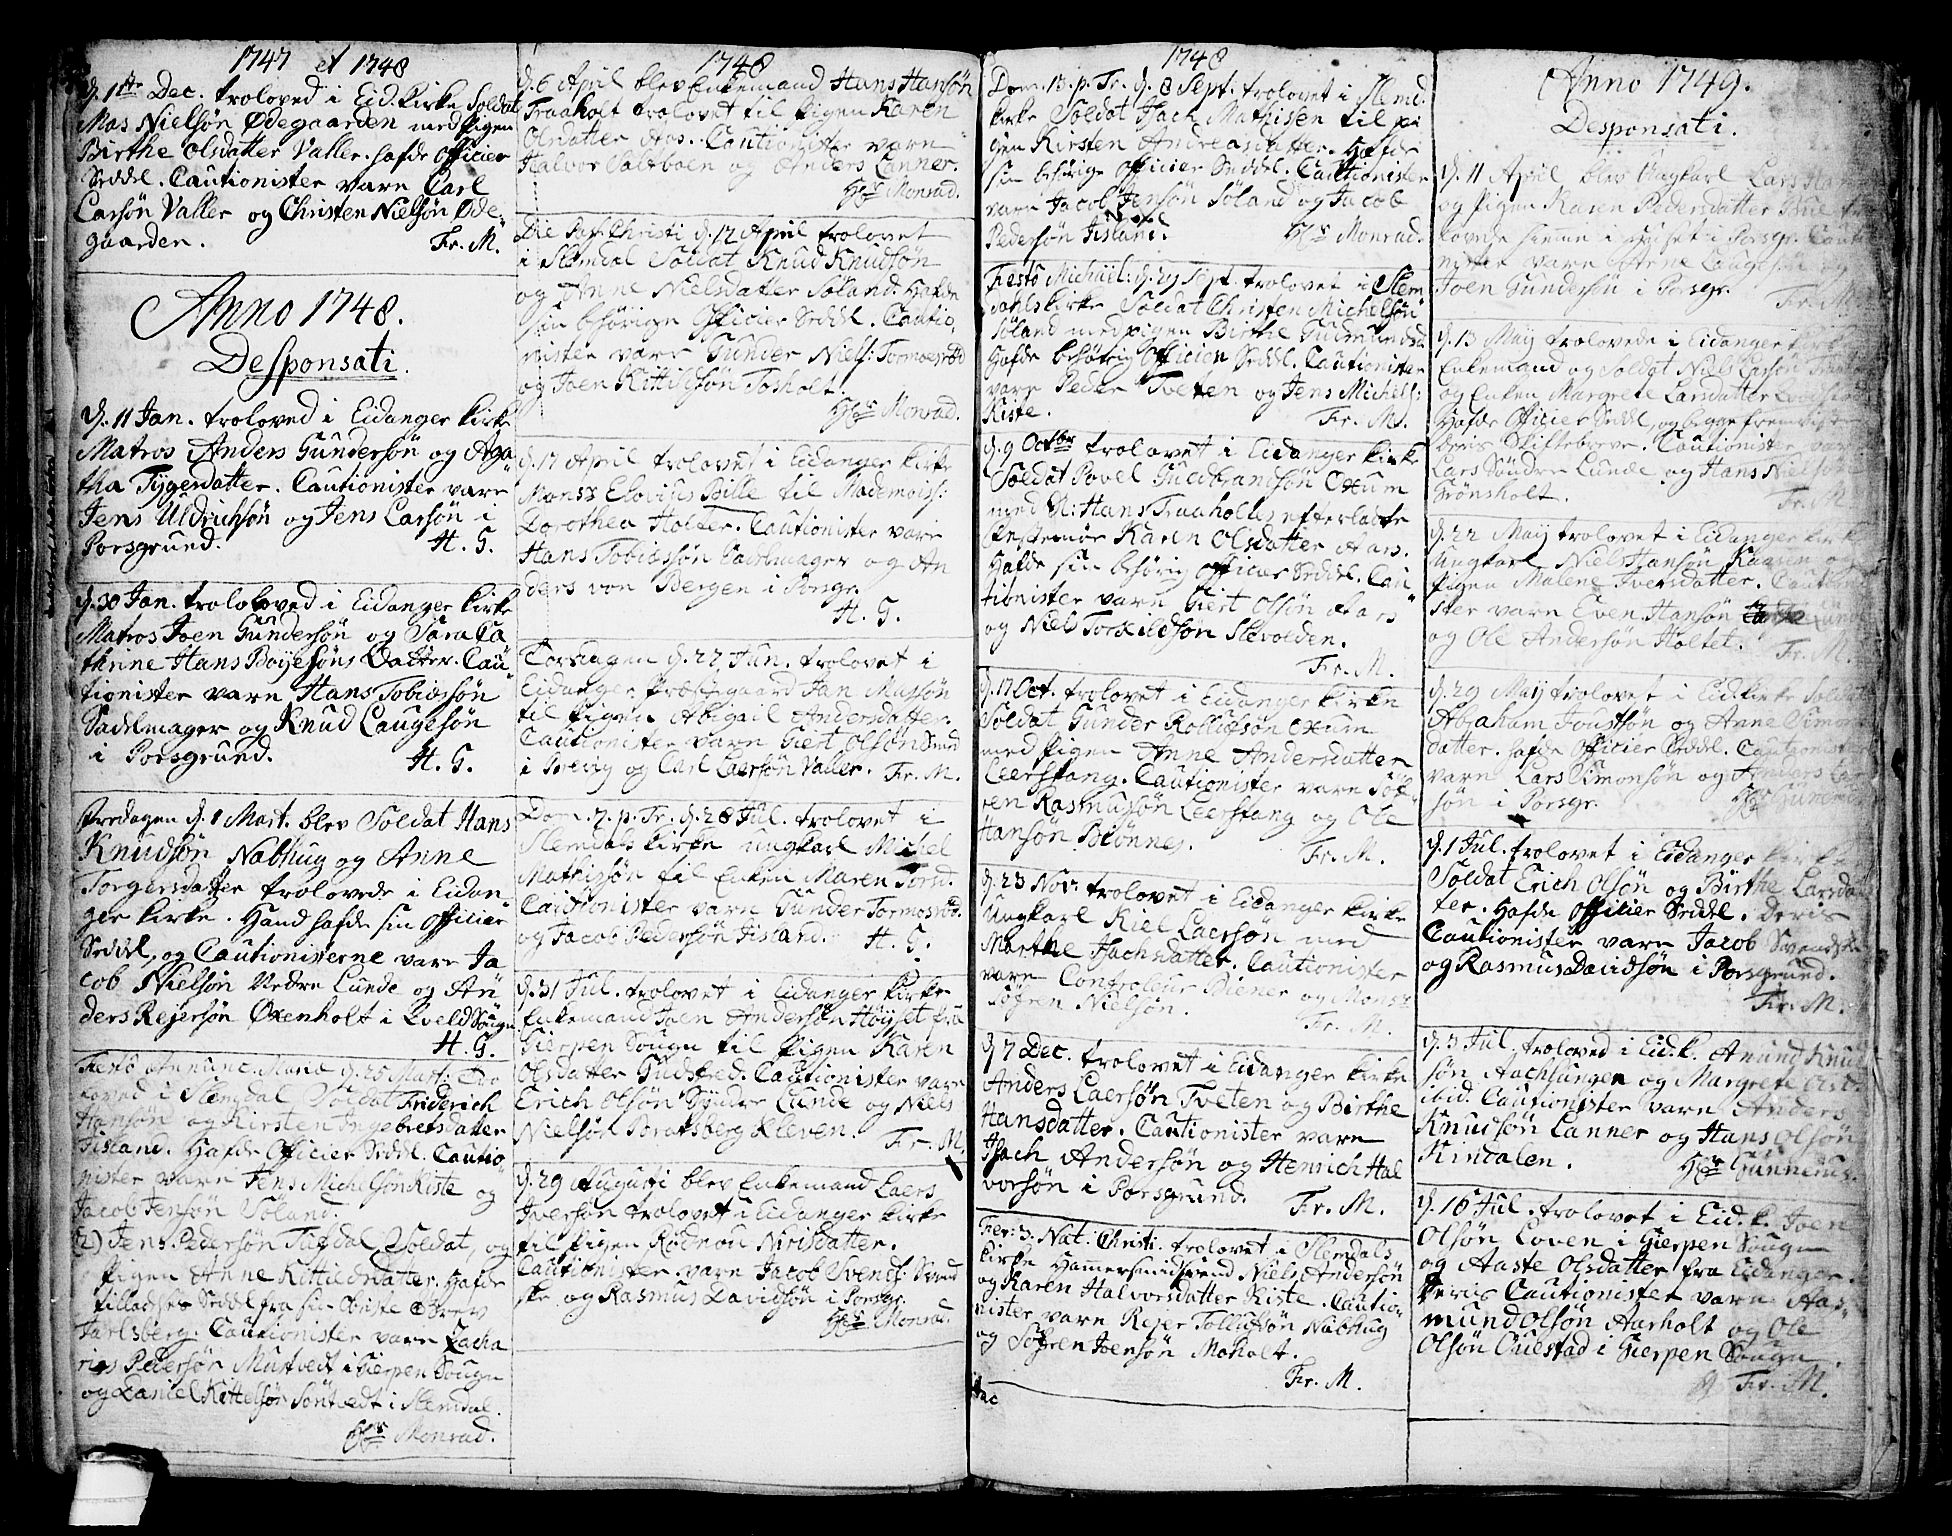 1747 et 1748
d. 1ste Dec. troloved i Eid. kirke Soldat
Mas Nielsøn Ødegaarden med pigen
Birthe Olsdatter Valler. hafde Officier
Seddel. Cautionister vare Carl
Larsøn Valler og Christen Nielsøn Øde-
gaarden. Fr. M.
Anno 1748.
Desponsati.
d. 11 Jan. troloved i Eidanger kirke
Matros Anders Gundersøn og Aga-
tha Tygesdatter. Cautionister vare
Jens Uldrichsøn og Jens Larsøn i
Porsgrund. H. G.
d. 30 Jan. troloved i Eidanger kirke
Matros Joen Gundersøn og Sara Ca
thrine Hans Boyesøns Datter. Cau-
tionister vare Hans Tobiassøn
Sadelmager og Knud Laugesøn
i Porsgrund. H. G.
Fredagen d. 1 Mart. blev Soldat Hans
Knudsøn Nabhug og Anne
Torgersdatter trolovede i Eidan-
ger kirke. Hand hafde sin Officier
Seddel, og Cautionisterne vare Ja
cob Nielsøn Nedre Lunde og An
ders Rejersøn Oxenholt i Sougn.
H. G.
Festo Annunc. Mariæ d. 25 Mart. tro
loved i Slemdal Soldat Friderich
Hansøn og Kirsten Ingebretsdatter
Fisland. Hafde Officier Seddel. Cautio
nister vare Jens Michelsøn Kiste og
Jacob Jensøn Søland.
2) Jens Pedersøn Soldat, og
pigen Anne Kittilsdatter. Hafde
tilladelse Seddel fra sin
Jarlsberg. Cautionister vare Zacha
rias Pedersøn i Gierpen Sougn
og Daniel Kittelsøn Sontvedt i Slemdal.
Hr. Monrad.
1748
d. 6 April blev Enkemand Hans Hansøn
Traaholt trolovet til pigen Karen
Olsdatter Aas. Cautionister vare
Halvor Valleboen og Anders Lanner.
Hr. Monrad.
Die Pas. Christi d. 12 April trolovet
i Slemdal Soldat Knud Knudsøn
og Anne Nielsdatter Søland. Hafde
sin behørige Officier Seddel. Cautio-
nister vare Gunder Niels: Tormoesrød
og Joen Kittilsøn Tosholt.
Hr. Monrad.
d. 17 April trolovet i Eidanger kirke
Monsr Elovius Bille til Mademoiss:
Dorothea Holter. Cautionister vare
Hans Tobiassøn Sadelmager og An
ders von Bergen i Porsgr.
H. G.
Torsdagen d. 27 Jun. trolovet i
Eidanger Præstegaard Jan Massøn
til pigen Abigail Andersdatter.
Cautionister vare Giert Olsøn Smed
i Brevig og Carl Laersøn Valler. Fr. M.
Dom. 7. p. Tr. d. 28 Jul. trolovet i
Slemdals kirke ungkarl Michel
Mathissøn til Enken Maren Torsd.
Cautionister vare Gunder Tormosrød.
og Jacob Pedersøn Fisland. H. G.
d. 31 Jul. trolovet i Eidanger kirke
Enkemand Joen Andersøn Høyset fra
Gierpen Sougn til Pigen Karen
Olsdatter Gudsted. Cautionister vare
Erich Olsøn Syndre Lunde og Niels
Nielsøn Bratsberg Kleven. Fr. M.
d. 29 Augusti blev Enkemand Laers
Iversøn trolovet i Eidanger kirke
til pigen Rødnou Nirisdatter.
Cautionister vare Jacob Svends: Svend
ske og Rasmus Davidsøn i Porsgr.
Hr. Monrad.
1748
Dom. 13. p. Tr. d. 8 Sept. trolovet i Slemd.
kirke Soldat Isach Mathisen til pi
gen Kirsten Andreasdatter. Hafde
sin behørige Officier Seddel. Cautionister
vare Jacob Jensøn Søland og Jacob
Pedersøn Fisland. Hr. Monrad.
Festo Michael: d. 29 Sept. trolovet i Slem
dahls kirke Soldat Christen Michelsøn
Søland med pigen Birthe Gudmundsd.
Hafde behørig Officier Seddel. Cautionister
vare Peder Tveten og Jens Michels:
Kiste. Fr. M.
d. 9 Octbr trolovet i Eidanger kirke
Soldat Povel Guldbrandsøn Oxum
med N: Hans Traaholtes efterladte
Enke Karen Olsdatter Aas.
Hafde sin behørig Officier Seddel. Cau-
tionister vare Giert Olsøn Aas
og Niels Torkildsøn Slevolden.
Fr. M.
d. 17 Oct. trolovet i Eidanger kirke
Soldat Gunder Rollufsøn Oxum
med pigen Anne Andersdatter
Leerstang. Cautionister vare Søf-
ren Rasmussøn Leerstang og Ole
Hansøn Biønnes. Fr. M.
d. 23 Novr trolovet i Eidanger kirke
Ungkarl Kiel Laersøn med
Marthe Isachsdatter. Cautionister
vare Controleur Diener og Monsr
Søfren Nielsøn. Fr. M.
d. 7 Dec. trolovet i Eidanger kirke
Anders Laersøn Tveten og Birthe
Hansdatter. Cautionister vare
Isach Andersøn og Henrich Hal
vorsøn i Porsgrund. Fr. M.
Fer: 3. Nat: Christi. trolovet i Slemdals
kirke Hammersmidsvend Niels Andersøn
og Karen Halvorsdatter Kiste. Cautio-
nister vare Rejer Tollufsøn Nabhug
og Søfren Joensøn Moholt.
Fr. M.
Anno 1749.
Desponsati.
d. 11 April blev Ungkarl Lars
og pigen Karen Pedersdatter
i Porsgr.
nister vare Arne
Joen Gundersøn i Porsgr.
Fr. M.
d. 13 Maij trolovede i Eidanger kirke
Enkemand og Soldat Niels Larsøn
og Enken Margrete Larsdatter
Hafde Officier Seddel, og begge fremviste
deris Skiftebreve. Cautionister vare
Lars Søndre Lunde og Hans Nielsøn
Grønsholt. Fr. M.
d. 22 Maij trolovet i Eidanger kirke
ungkarl Niels Hansøn Kaasen og
pigen Malene Iversdatter. Cautioni
ster vare Even Hansøn Lunde
og Ole Andersøn Holtet. Fr. M.
d. 29 Maij trolovet i Eid. kirke Soldat
Abraham Joustsøn og Anne Simons
datter. hafde Officier Seddel. Cautionister
vare Lars Simonsøn og Anders Lar
søn i Porsgr. Hr Gunnerus
d. 1 Jul. trolovet i Eidanger kirke
Soldat Erich Olsøn og Birthe Larsdat
ter. Hafde Officier Seddel. Deris
Cautionister vare Jacob Svendske
og Rasmus Davidsøn i Porsgrund.
Fr. M.
d. 3 Jul. troloved i Eid. k. Amund Knud
søn Aachlungen og Margrete
ibid. Cautionister vare Anders
Knudsøn Lanner og Hans Olsøn
Kirdalen. Hr Gunnerus.
d. 16 Jul. trolovet i Eid. k. Joen
Olsøn Loven i Gierpen Sougn
og Aaste Olsdatter fra Eidanger.
Deris Cautionister vare Aas
mund Olsøn Aarholt og Ole
Olsøn Ouestad i Gierpen Sougn.
Fr. M.